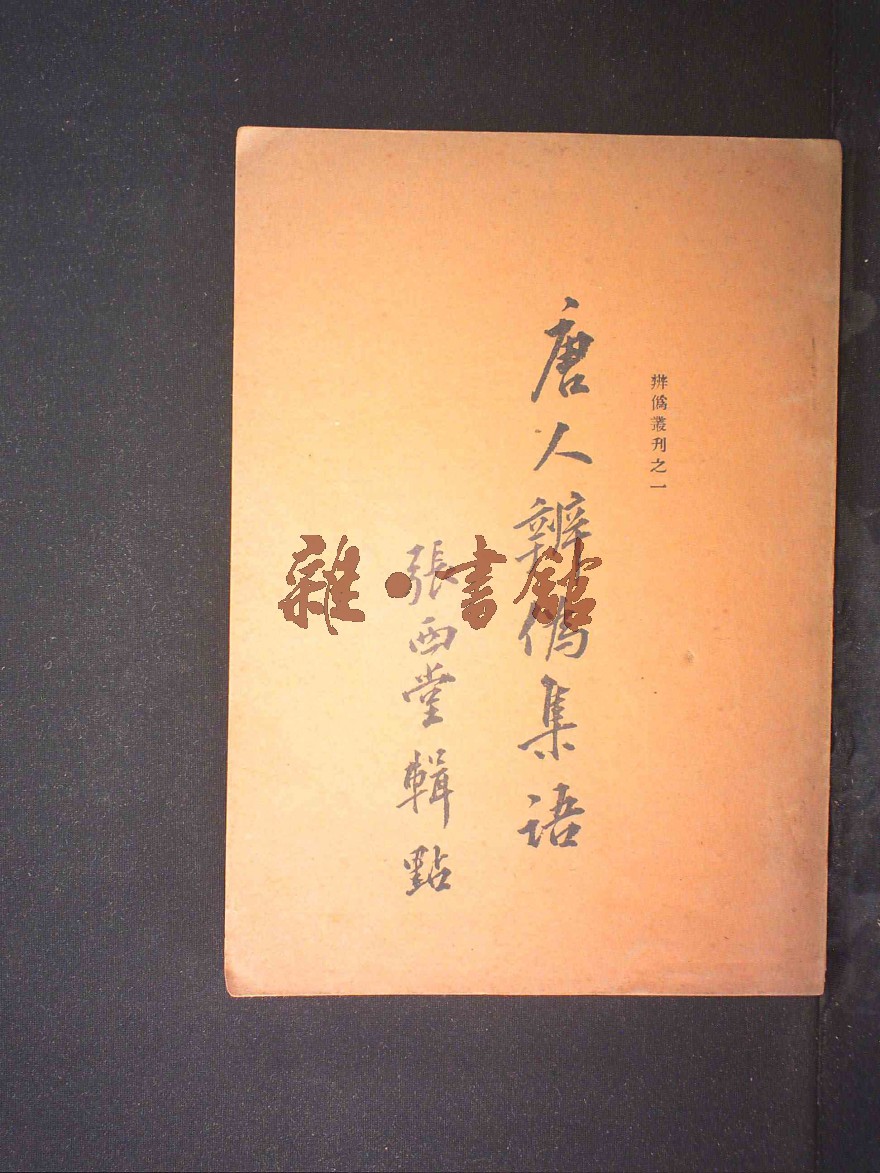 辨偽叢刊之一
唐人辨偽集语
張西堂輯點
雜·書館